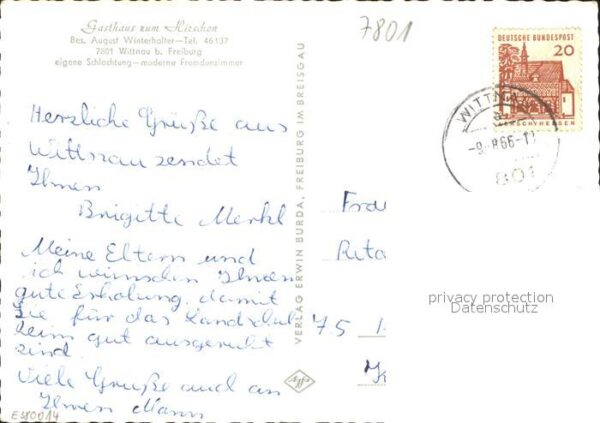 Gasthaus zum Hirschen
Bes. August Winterhalter—Tel. 46137
7801 Wittnau b. Freiburg
eigene Schlachtung—moderne Fremdenzimmer
7801
DEUTSCHE BUNDESPOST
20
LORSCH/HESSEN
WITTNAU
-9.-8.66-11
801
Herzliche Grüße aus
Wittnau sendet
Ihnen
Brigitte Merkl
Meine Eltern und
ich wünschen Ihnen
gute Erholung, damit
Sie für das
heim gut ausgeruht
sind.
Viele Grüße auch an
Ihren Mann
VERLAG ERWIN BURDA, FREIBURG IM BREISGAU
Agfa
Frau
Rita
75
privacy protection
Datenschutz